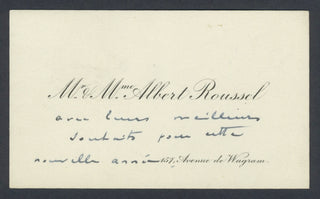 Mr. & Mme. Albert Roussel
avec leurs meilleurs
souhaits pour cette
nouvelle année 157, Avenue de Wagram.